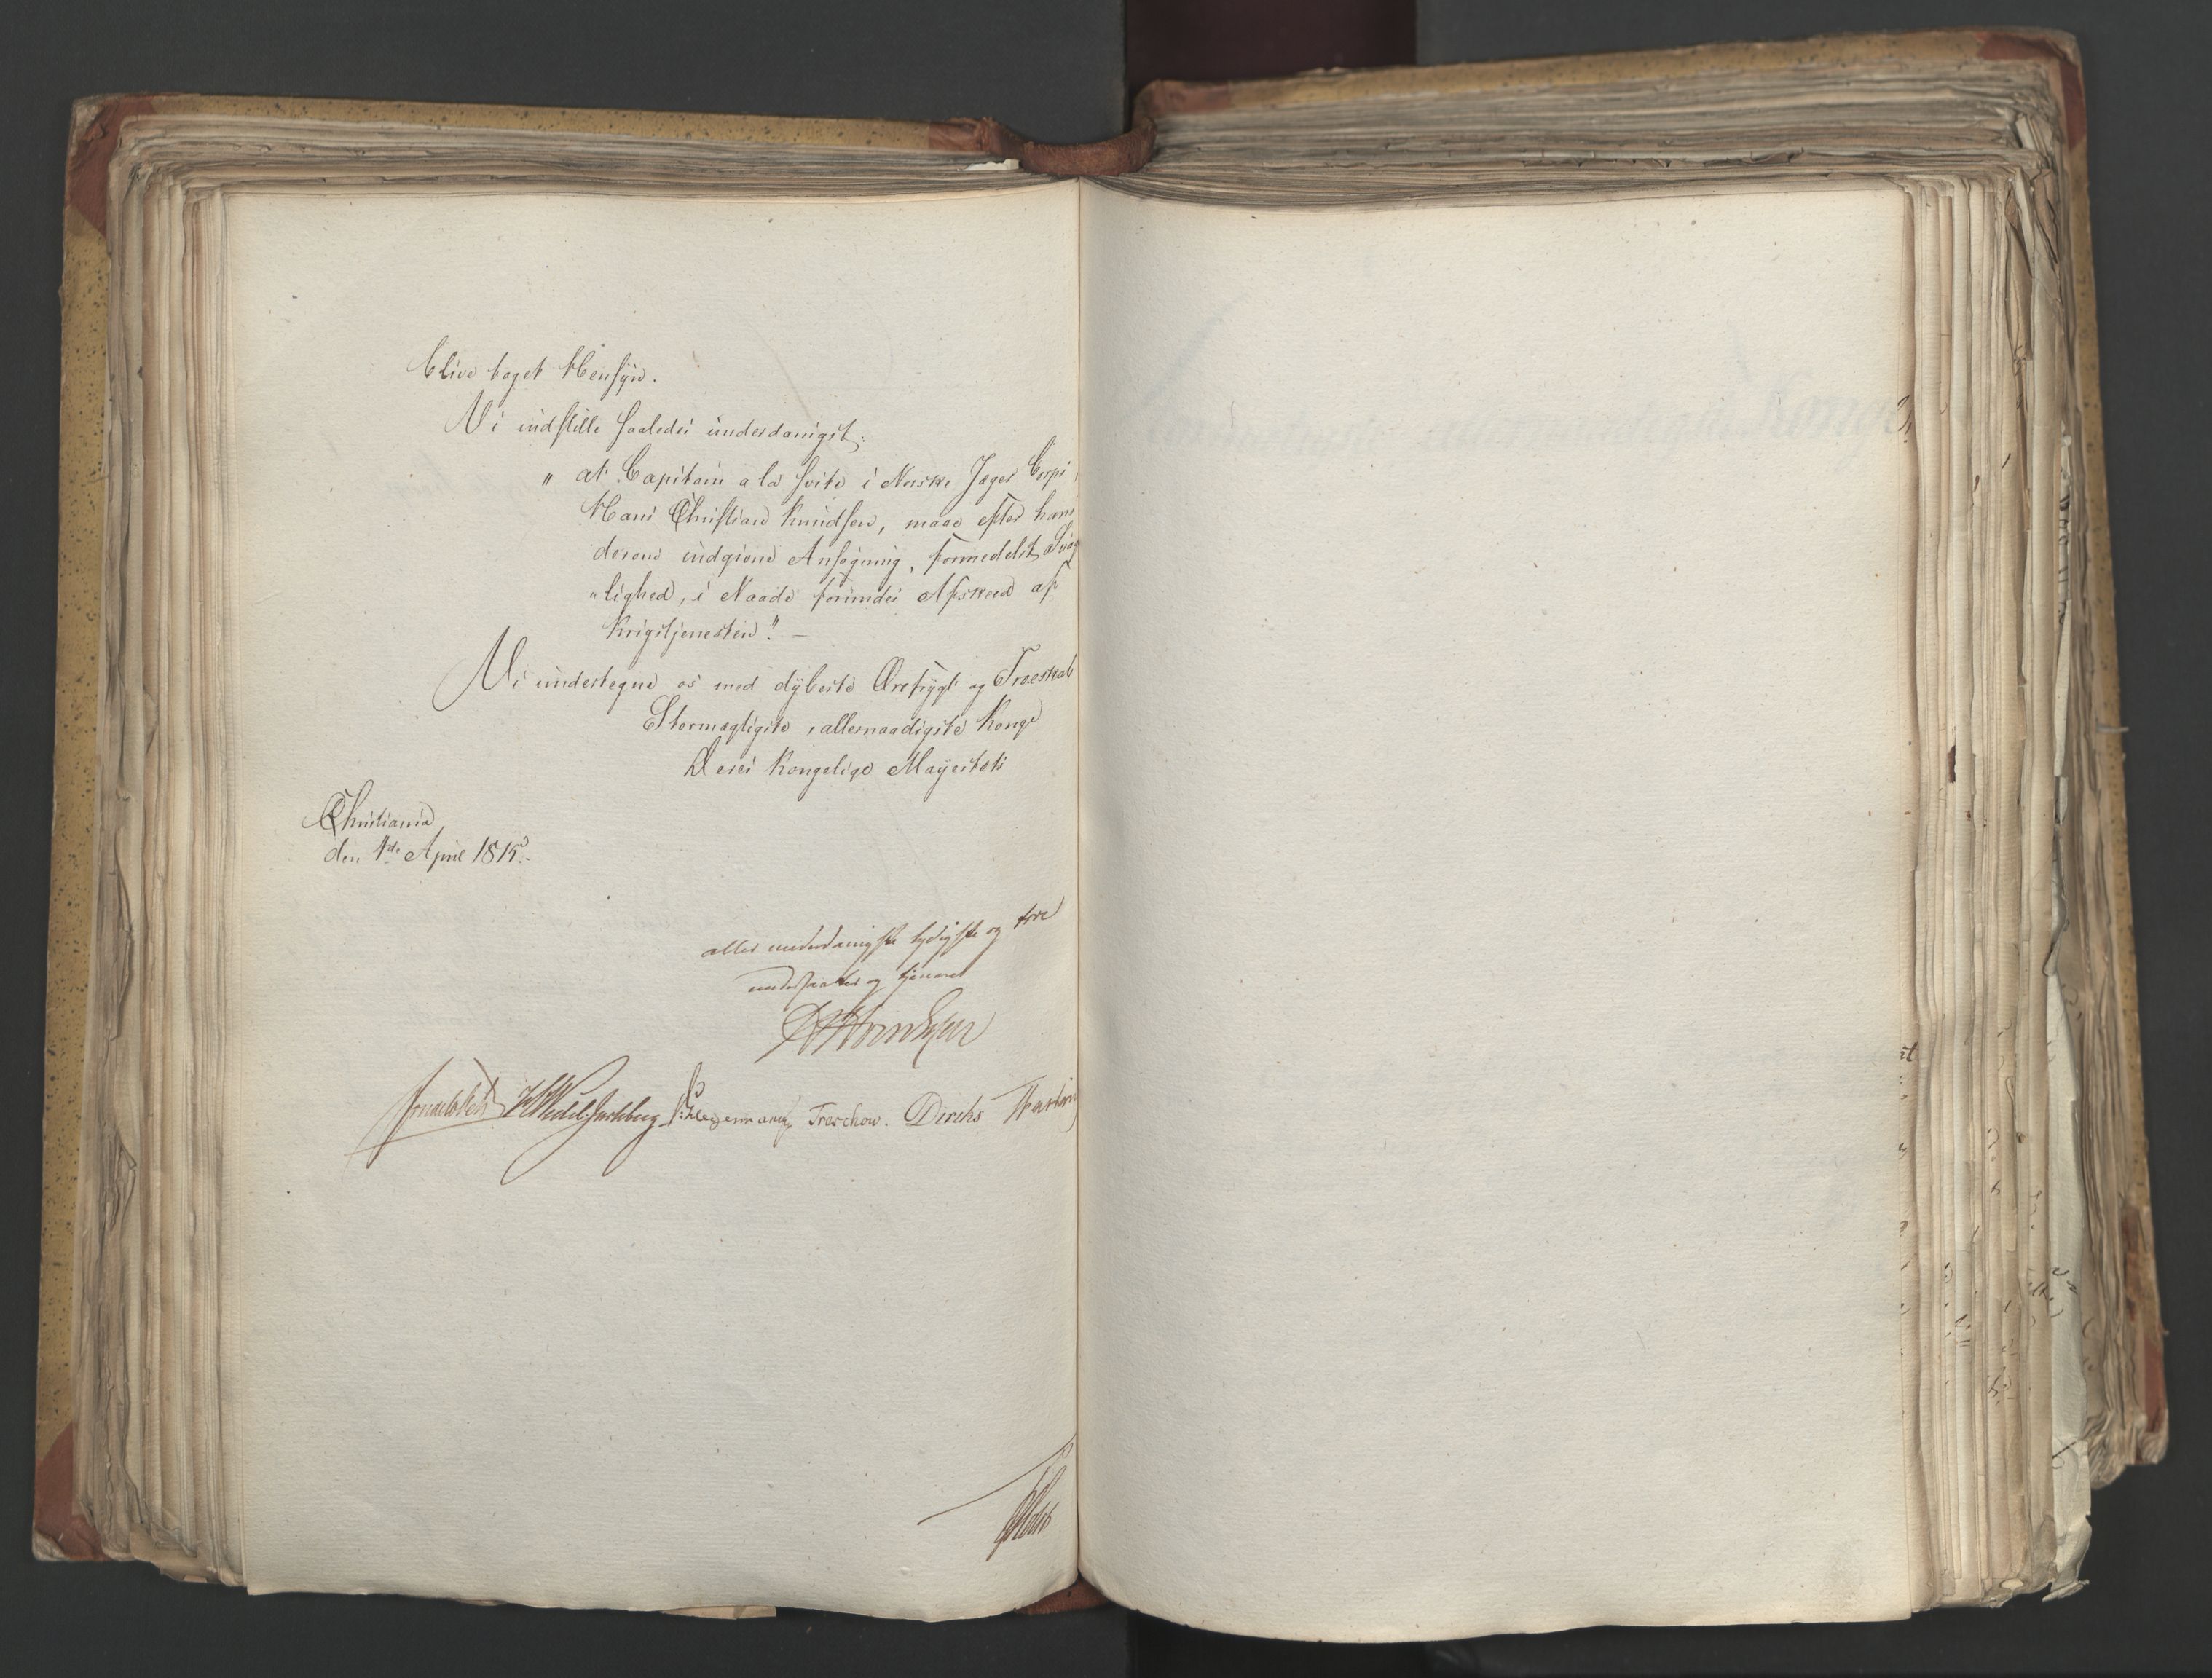 blive taget Hensyn.
Vi indstille saaledes underdanigst:
" at Capitain a la Svite i Norske Jæger Corps,
Hans Christian Knudsen, maae efter hans
derom indgivne Ansøgning, formedelst Svag
"lighed, i Naade forundes Afskeed af
Krigstjenesten". —
Vi undertegne os med dybeste Ærefrygt og Troeskab
Stormægtigste, allernaadigste Konge
Deres Kongelige Mayestæts
Christiania
den 1ste April 1815.
aller underdanigste lydigste og troe
undersaatter og tjenere
Sommerhjelm Wedel Jarlsberg Hegermann Treschow. Diriks
Holst